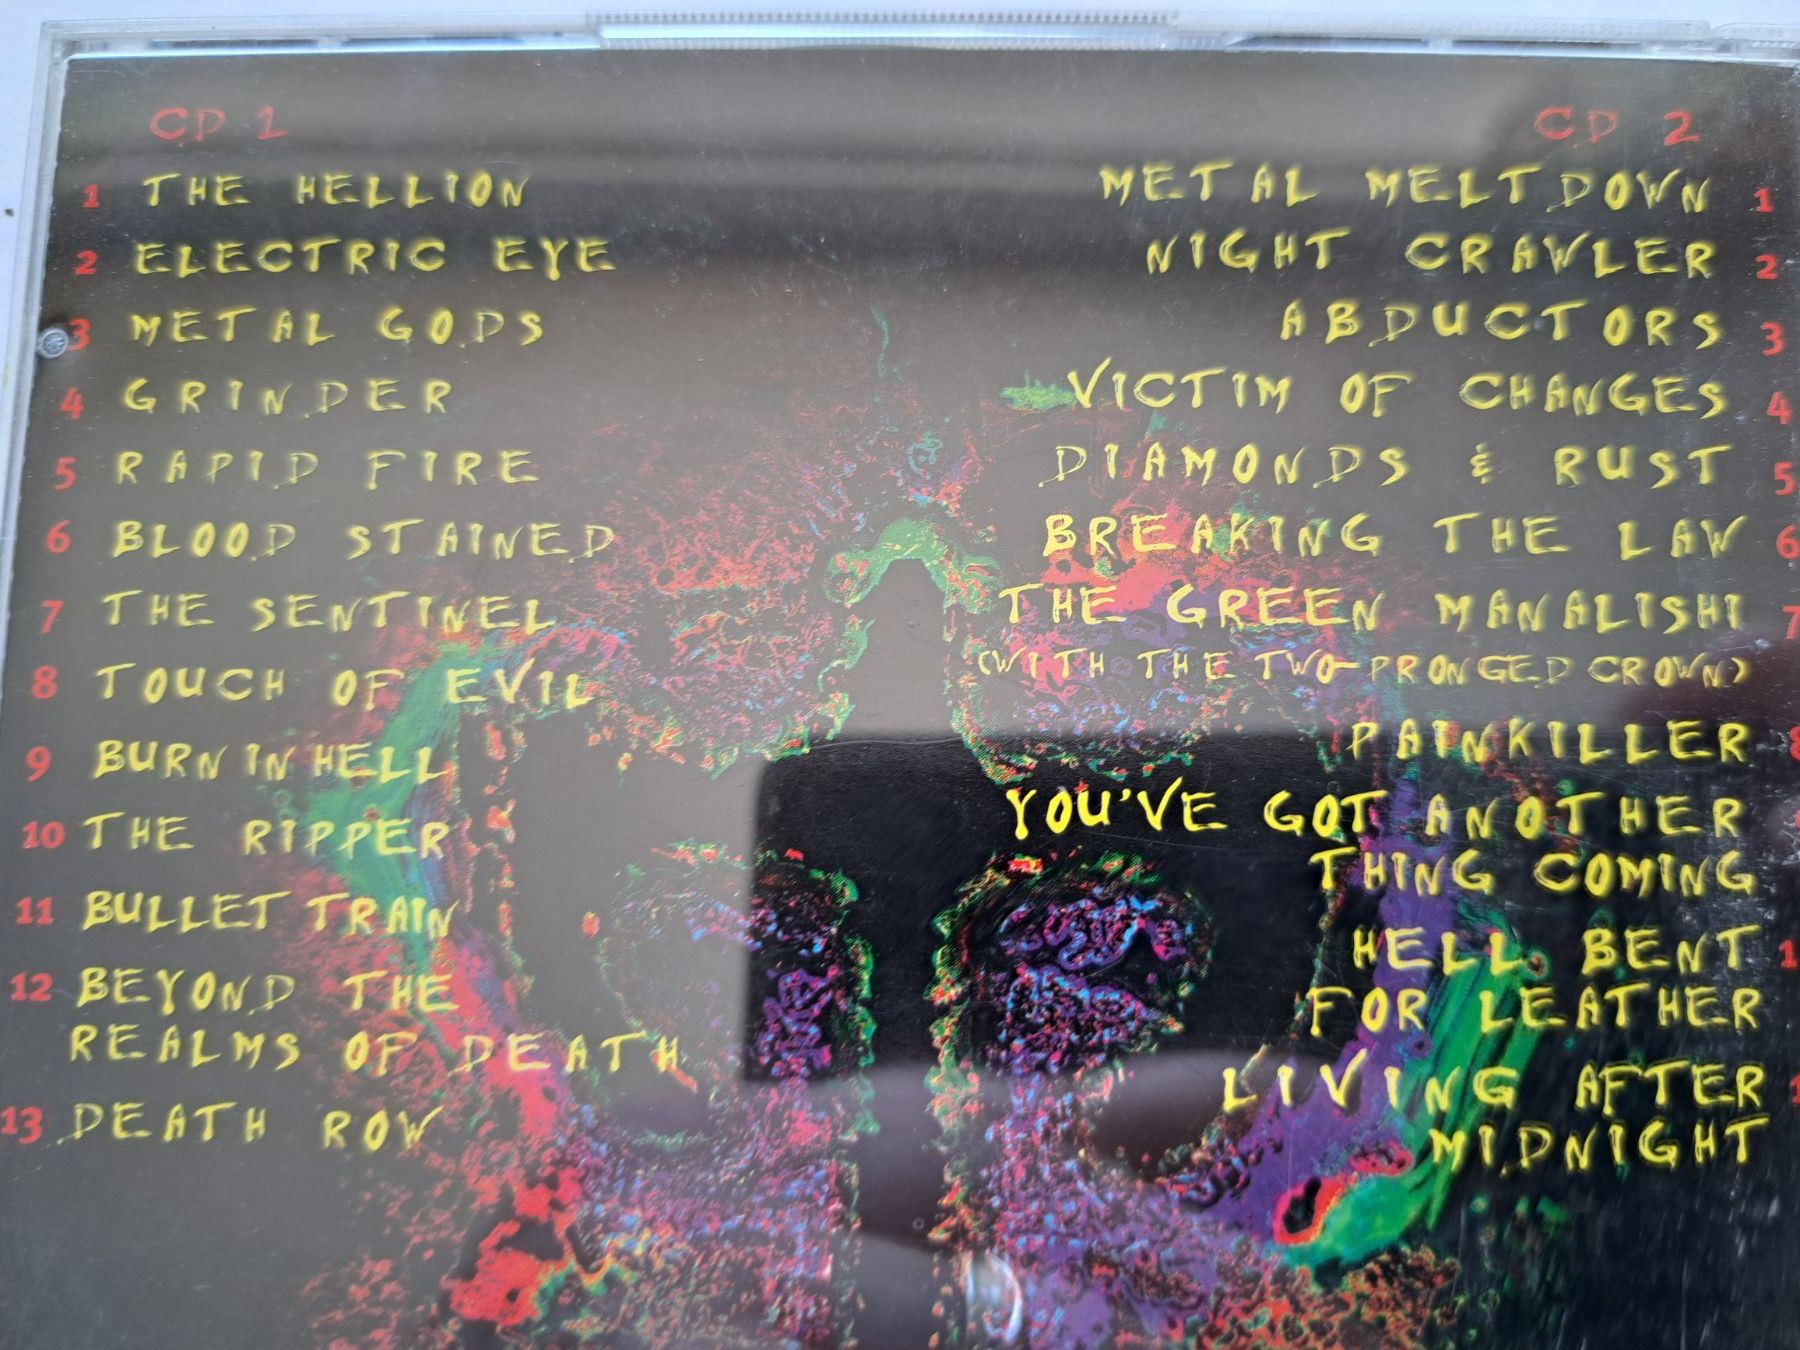 CD 1
1 THE HELLION
2 ELECTRIC EYE
3 METAL GODS
4 GRINDER
5 RAPID FIRE
6 BLOOD STAINED
7 THE SENTINEL
8 TOUCH OF EVIL
9 BURN IN HELL
10 THE RIPPER
11 BULLET TRAIN
12 BEYOND THE
REALMS OF DEATH
13 DEATH ROW
CD 2
METAL MELTDOWN 1
NIGHT CRAWLER 2
ABDUCTORS 3
VICTIM OF CHANGES 4
DIAMONDS & RUST 5
BREAKING THE LAW 6
THE GREEN MANALISHI 7
(WITH THE TWO-PRONGED CROWN)
PAINKILLER 8
YOU'VE GOT ANOTHER
THING COMING
HELL BENT
FOR LEATHER
LIVING AFTER
MIDNIGHT